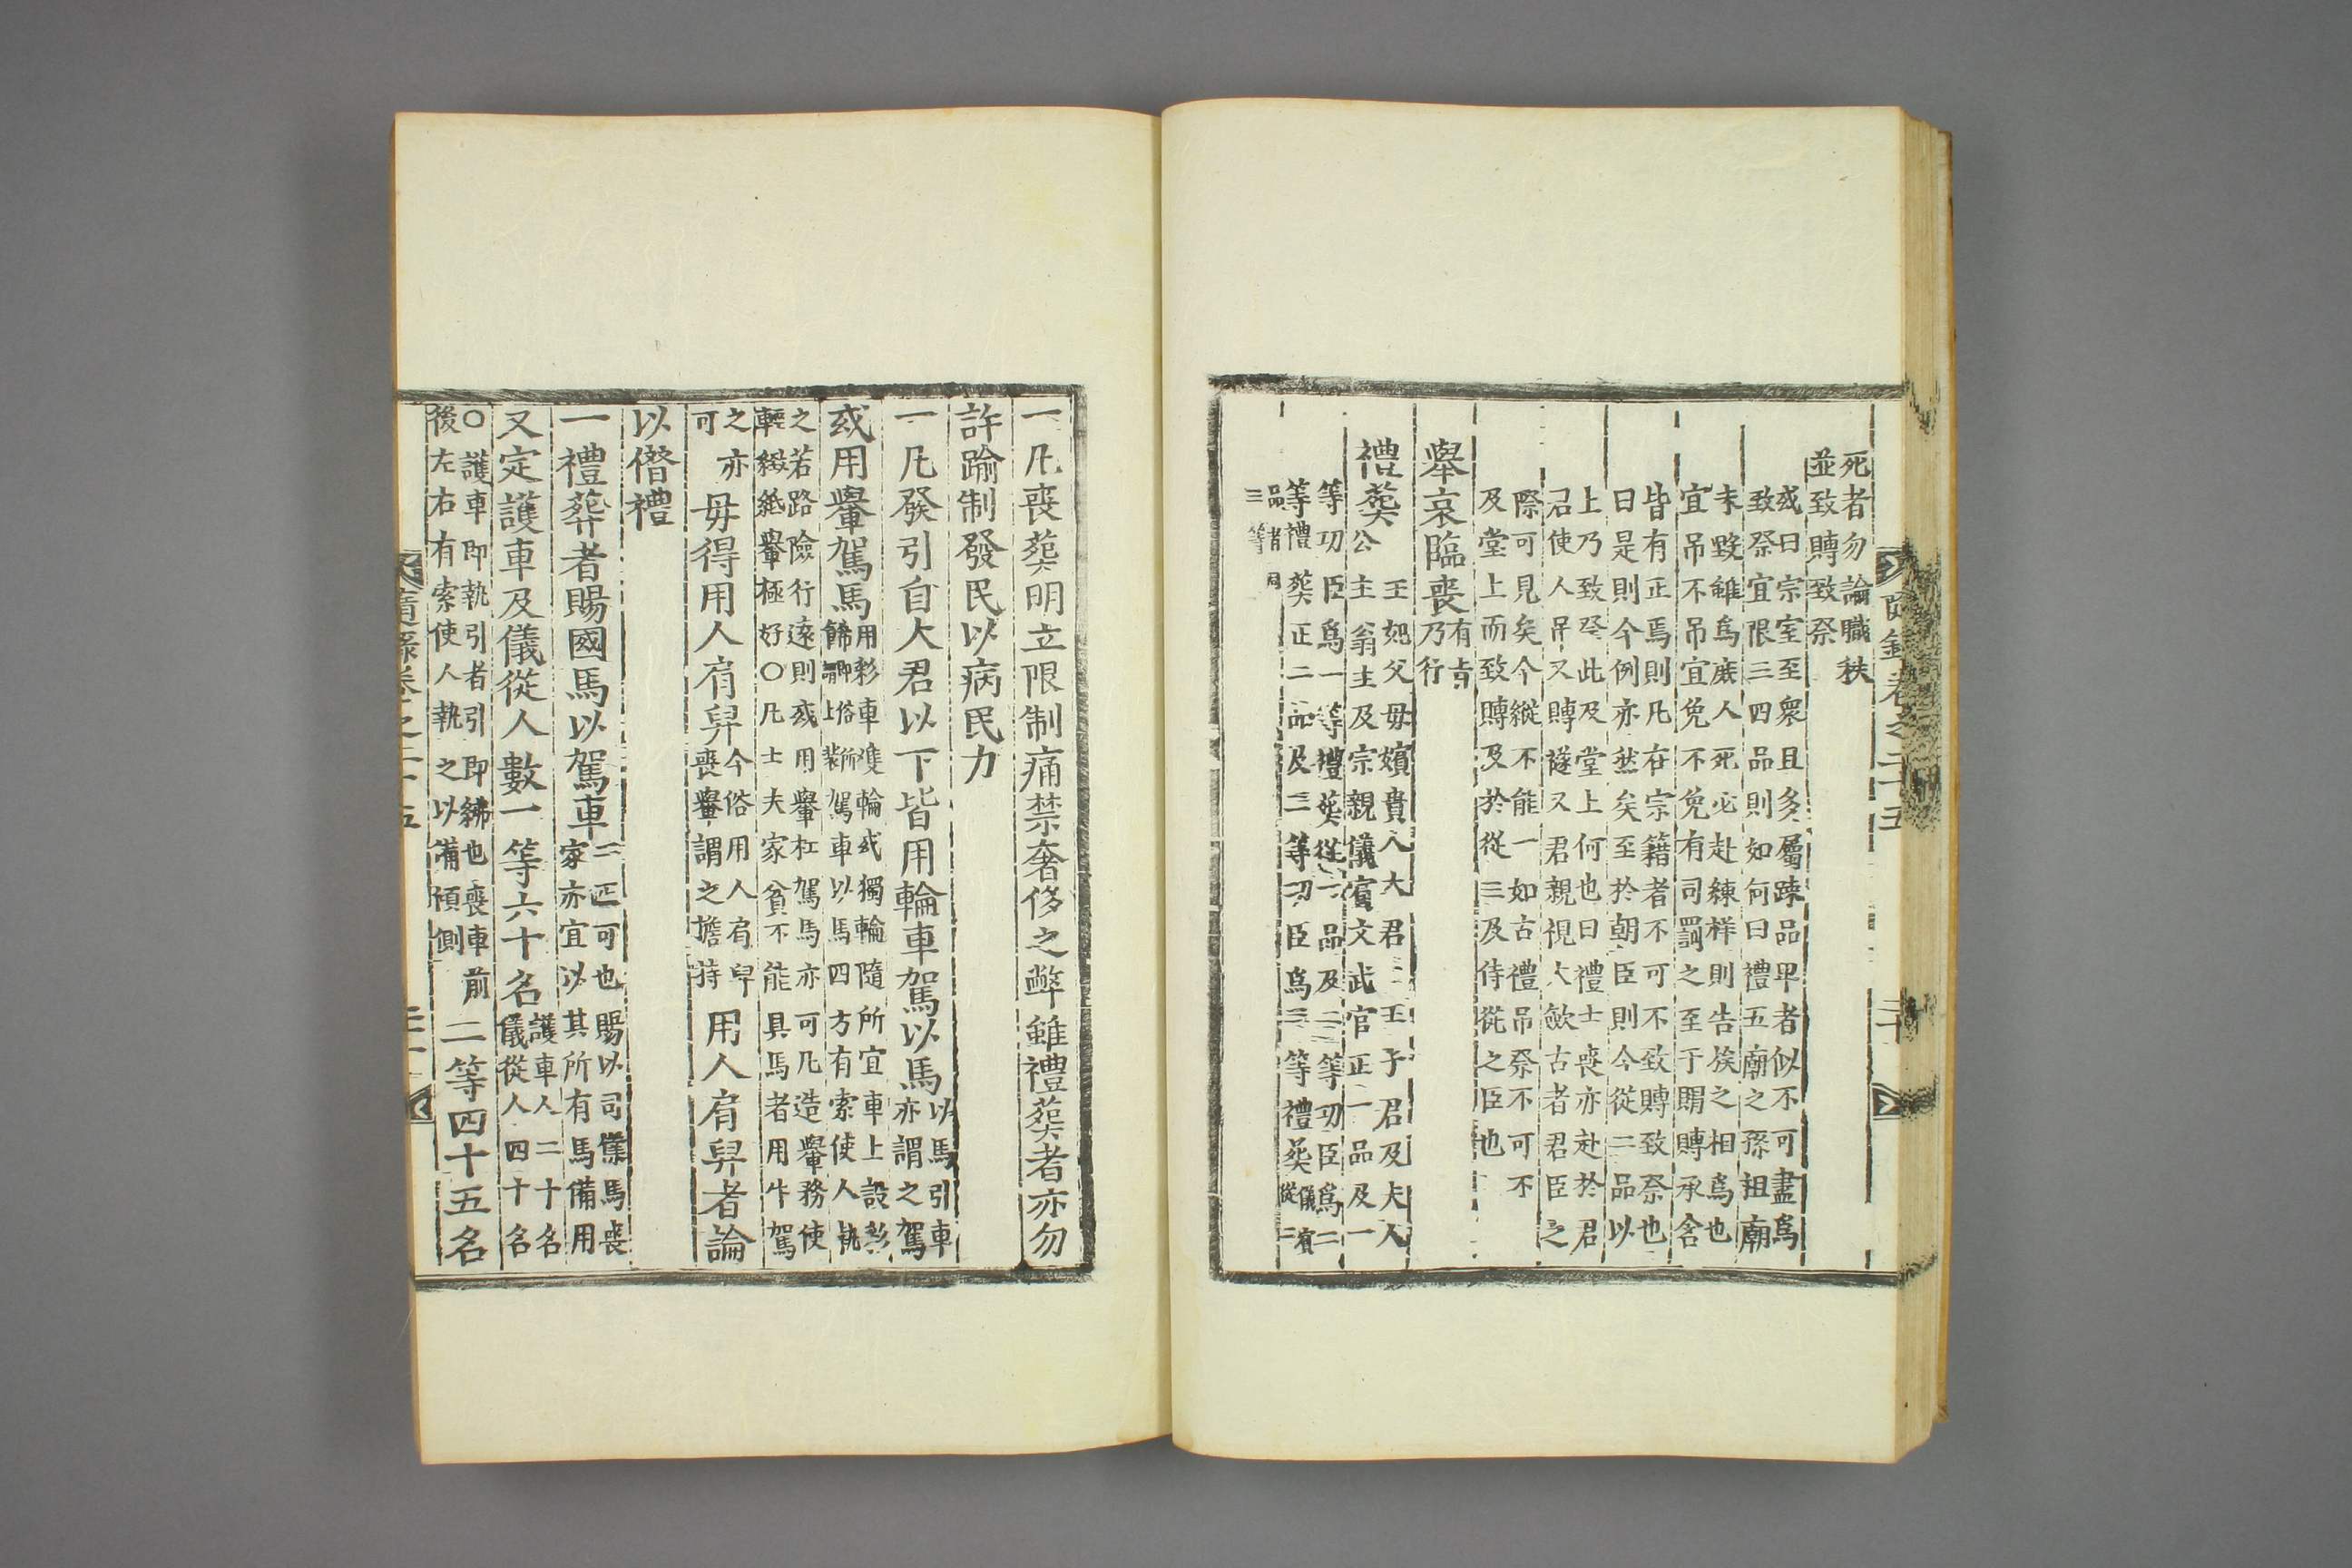 死者勿論職秩
並致賻致祭
或曰宗室至衆且多屬踈品卑者似不可盡爲
致祭宜限三四品則如何曰禮五廟之孫祖廟
未毁雖爲庶人死必赴練祥則告族之相爲也
宜吊不吊宜免不免有司罰之至于賵賻承含
皆有正焉則凡在宗籍者不可不致賻致祭也
曰是則今例亦然矣至於朝臣則今從二品以
上乃致祭此及堂上何也曰禮士喪亦赴於君
君使人吊又賻襚又君親視大斂古者君臣之
際可見矣今縱不能一如古禮吊祭不可不
及堂上而致賻及於從三及侍從之臣也
擧哀臨喪
有旨
乃行
禮葬
王妃父母嬪貴人大君王子君及夫人
公主翁主及宗親儀賓文武官正一品及一
等功臣爲一等禮葬從一品及二等功臣爲二
等禮葬正二品及三等功臣爲三等禮葬
儀賓
品者同
三等
隨錄卷之二十五
三十
一凡喪葬明立限制痛禁奢侈之弊雖禮葬者亦勿
許踰制發民以病民力
一凡發引自大君以下皆用輪車駕以馬
以馬引車
亦謂之駕
或用轝駕馬
用彩車雙輪或獨輪隨所宜車上設彩
飾卽俗所裝駕車以馬四方有索使人執
之若路險行遠則或用轝杠駕馬亦可凡造轝務使
輕綴紙轝極好○凡士夫家貧不能具馬者用牛駕
之亦
可
毋得用人肩舁
今俗用人肩舁
喪轝謂之擔持
用人肩舁者論
以僭禮
一禮葬者賜國馬以駕車
二匹可也賜以司僕馬喪
家亦宜以其所有馬備用
又定護車及儀從人數一等六十名
護車人二十名
儀從人四十名
○護車即執引者引即紼也喪車前
後左右有索使人執之以備傾側
二等四十五名
隨錄卷之二十五
三十一